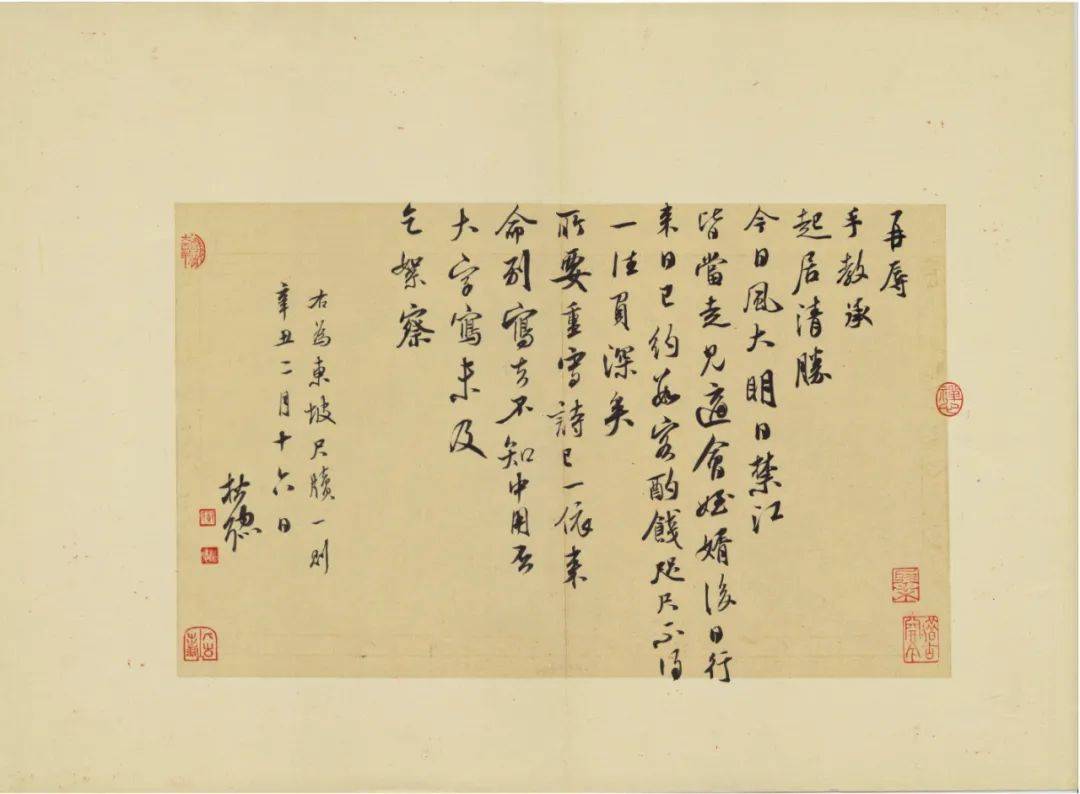 再辱
手教承
起居清勝
今日風大明日禁江
皆當走見適會姪婿後日行
来日已約数客酌餞咫尺不得
一往負深矣
所要重寫詩已一依来
命別寫去不知中用否
大字寫未及
乞絮察
右為東坡尺牘一則
辛丑二月十六日